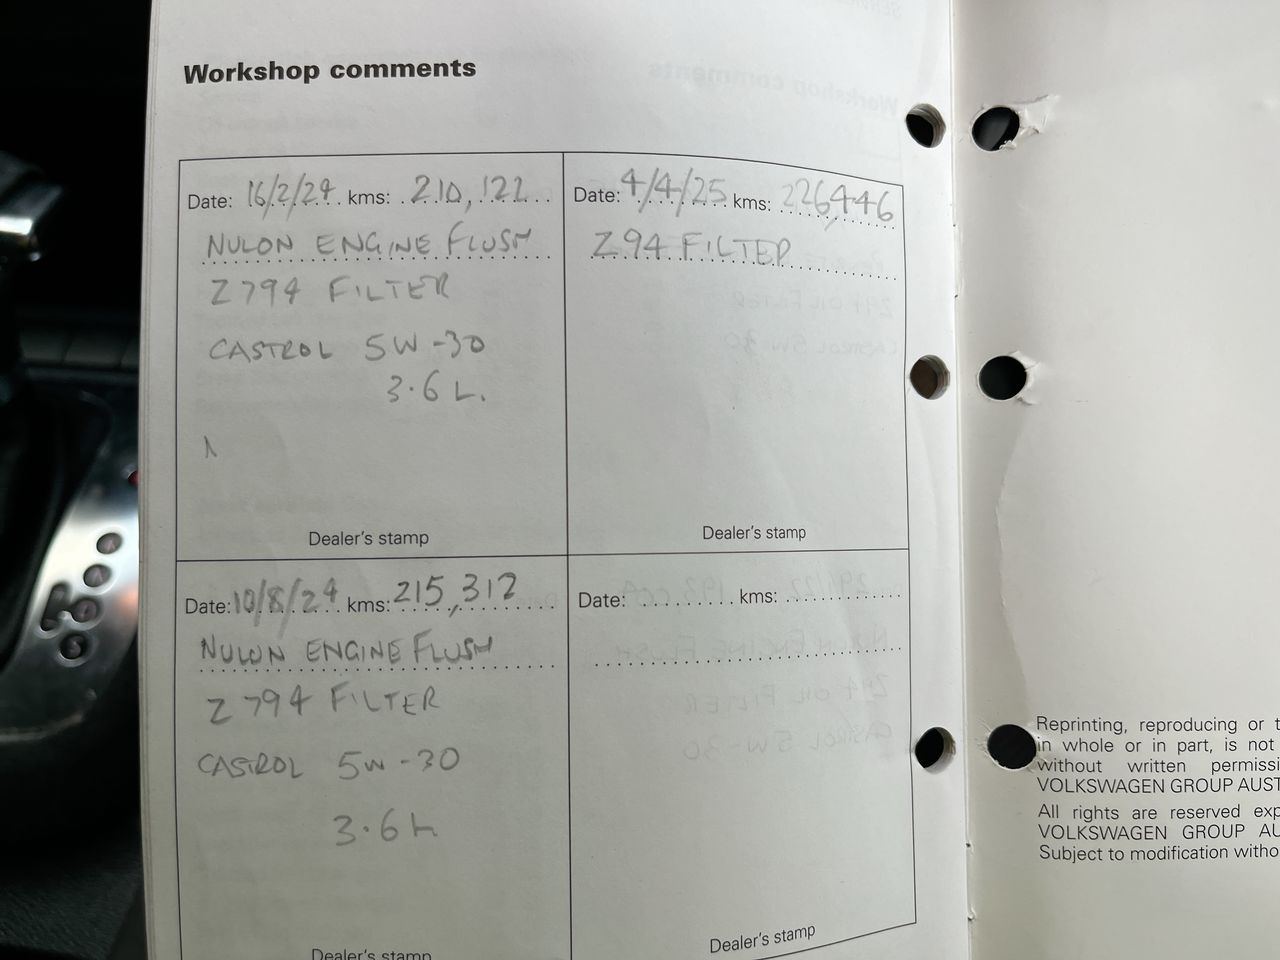 Workshop comments
Date: 16/2/24 kms: 210,122
NULON ENGINE FLUSH
Z794 FILTER
CASTROL 5W-30
3.6 L.
Dealer's stamp
Date: 4/4/25 kms: 226,446
Z94 FILTER
Dealer's stamp
Date: 10/8/24 kms: 215,312
NULON ENGINE FLUSH
Z794 FILTER
CASTROL 5W-30
3.6 L
Dealer's stamp
Date: kms:
Dealer's stamp
Reprinting, reproducing or t
in whole or in part, is not
without written permissi
VOLKSWAGEN GROUP AUST
All rights are reserved exp
VOLKSWAGEN GROUP AU
Subject to modification witho